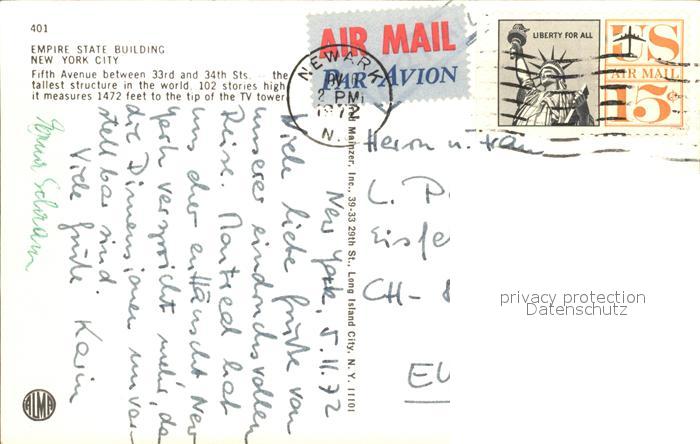 401
EMPIRE STATE BUILDING
NEW YORK CITY
Fifth Avenue between 33rd and 34th Sts. -- the
tallest structure in the world, 102 stories high
it measures 1472 feet to the tip of the TV tower
AIR MAIL
PAR AVION
NEWARK
2 PM
1972
N.
LIBERTY FOR ALL
US
AIR MAIL
15¢
Mainzer, Inc., 39-33 29th St., Long Island City, N. Y. 11101
New York, 5.11.72
Viele liebe Grüße von
unserer eindrucksvollen
Reise. Manfred hat
uns aber enttäuscht New
York verspricht mehr, da
die Dimensionen unvor-
stellbar sind.
Viele Grüße Karin
Herrn u. Frau
L.
CH-
ALMA
privacy protection
Datenschutz